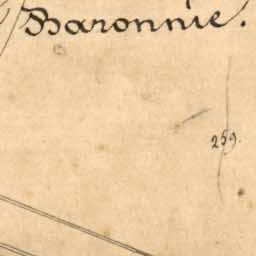 Baronnie.
259.